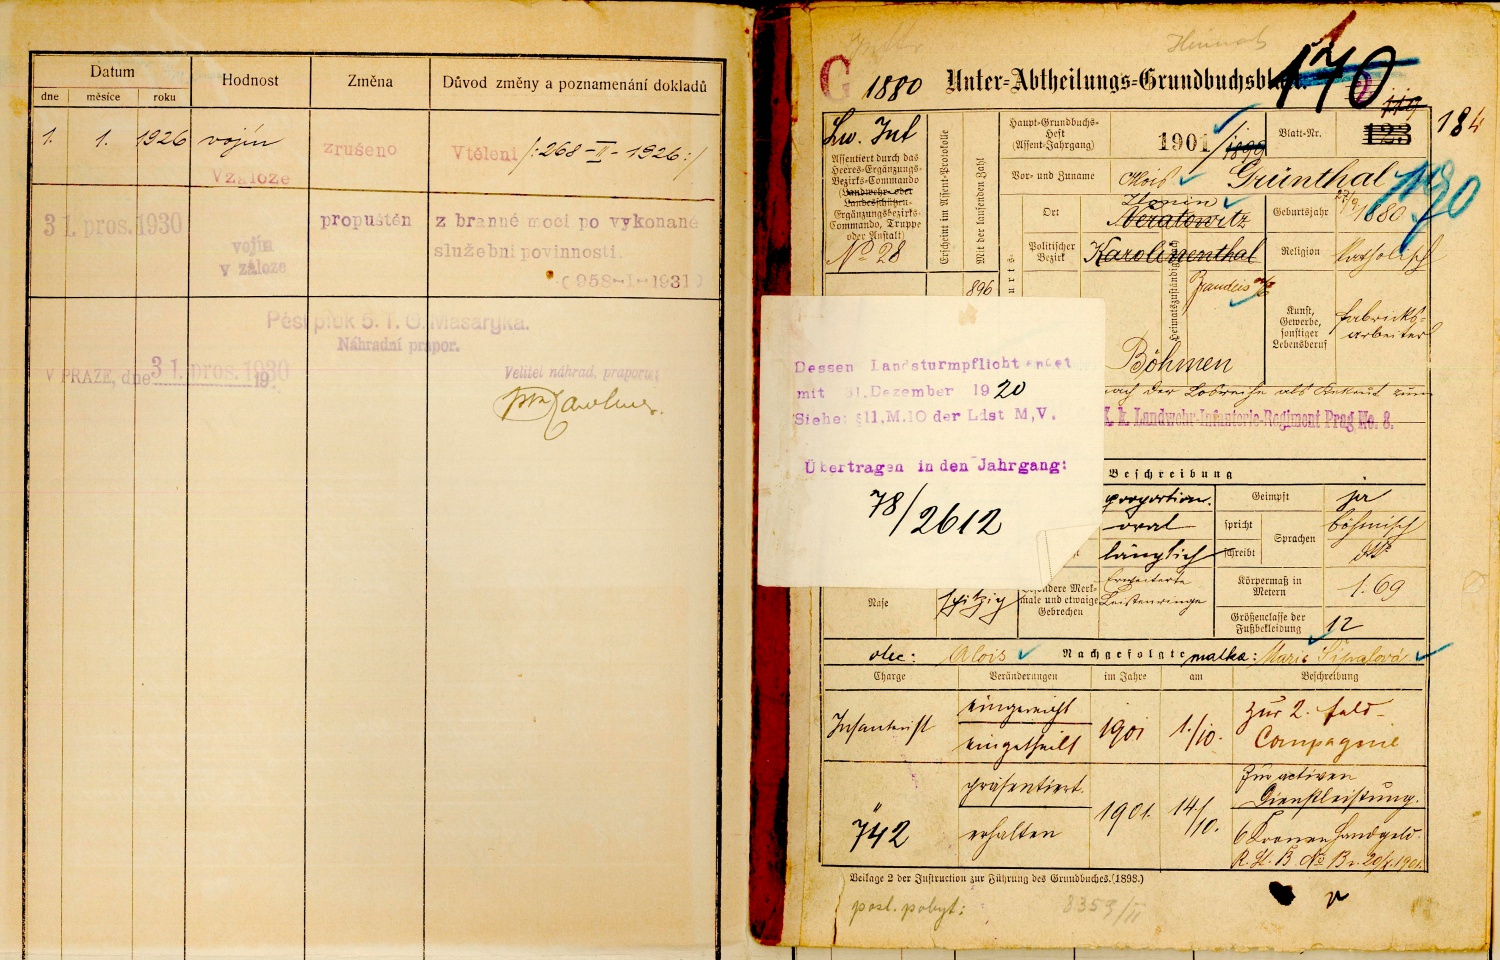 Datum
Hodnost
Změna
Důvod změny a poznamenání dokladů
dne
měsíce
roku
1. 1. 1926 vojín zrušeno Vtělení /:268-II-1926:/
Vzáloze
31. pros. 1930 propuštěn z branné moci po vykonané
vojín služební povinnosti.
v záloze (958-I-1931)
Pěší pluk 5. T. G. Masaryka.
Náhradní prapor.
V PRAZE, dne 31. pros. 1930
19
Velitel náhrad. praporu:
G 1880 Unter-Abtheilungs-Grundbuchsblatt
170
119
123
184
190
Lw. Inf
Assentiert durch das
Heeres-Ergänzungs-
Bezirks-Commando
(Landwehr- oder
Landesschützen-
Ergänzungsbezirks-
Commando, Truppe
oder Anstalt)
No 28
Erscheint im Assent-Protokolle
Mit der laufenden Zahl
896
Haupt-Grundbuchs-
Heft
(Assent-Jahrgang)
1901 / 1899
Blatt-Nr.
Vor- und Zuname
Alois Grünthal
Ort
Neratowitz
Geburtsjahr
1880
Politischer
Bezirk
Karolinenthal
Religion
katholisch
Heimatszuständigkeit
Brandeis
Kunst,
Gewerbe,
sonstiger
Lebensberuf
Fabriks-
arbeiter
Böhmen
nach der Losreihe als Rekrut zum
K. k. Landwehr-Infanterie-Regiment Prag No. 8.
Dessen Landsturmpflicht endet
mit 31. Dezember 1920
Siehe: §11, M.10 der Ldst M,V.
Übertragen in den Jahrgang:
78/2612
Beschreibung
proportion.
Geimpft
ja
oval
spricht
Sprachen
böhmisch
länglich
schreibt
Nase
spitzig
besondere Merk-
male und etwaige
Gebrechen
Erweiterte
Leistenringe
Körpermaß in
Metern
1.69
Größenclasse der
Fußbekleidung
12
otec: Alois Nachgefolgte matka: Marie
Charge
Veränderungen
im Jahre
am
Beschreibung
Infanterist eingereiht 1901 1./10. Zur 2. Feld-
eingetheilt Compagnie
" präsentirt. 1901. 14./10. Zur activen
Dienstleistung.
742 erhalten 6 Kronen Handgeld.
Beilage 2 der Instruction zur Führung des Grundbuches. (1898.)
posl. pobyt:
8353/II